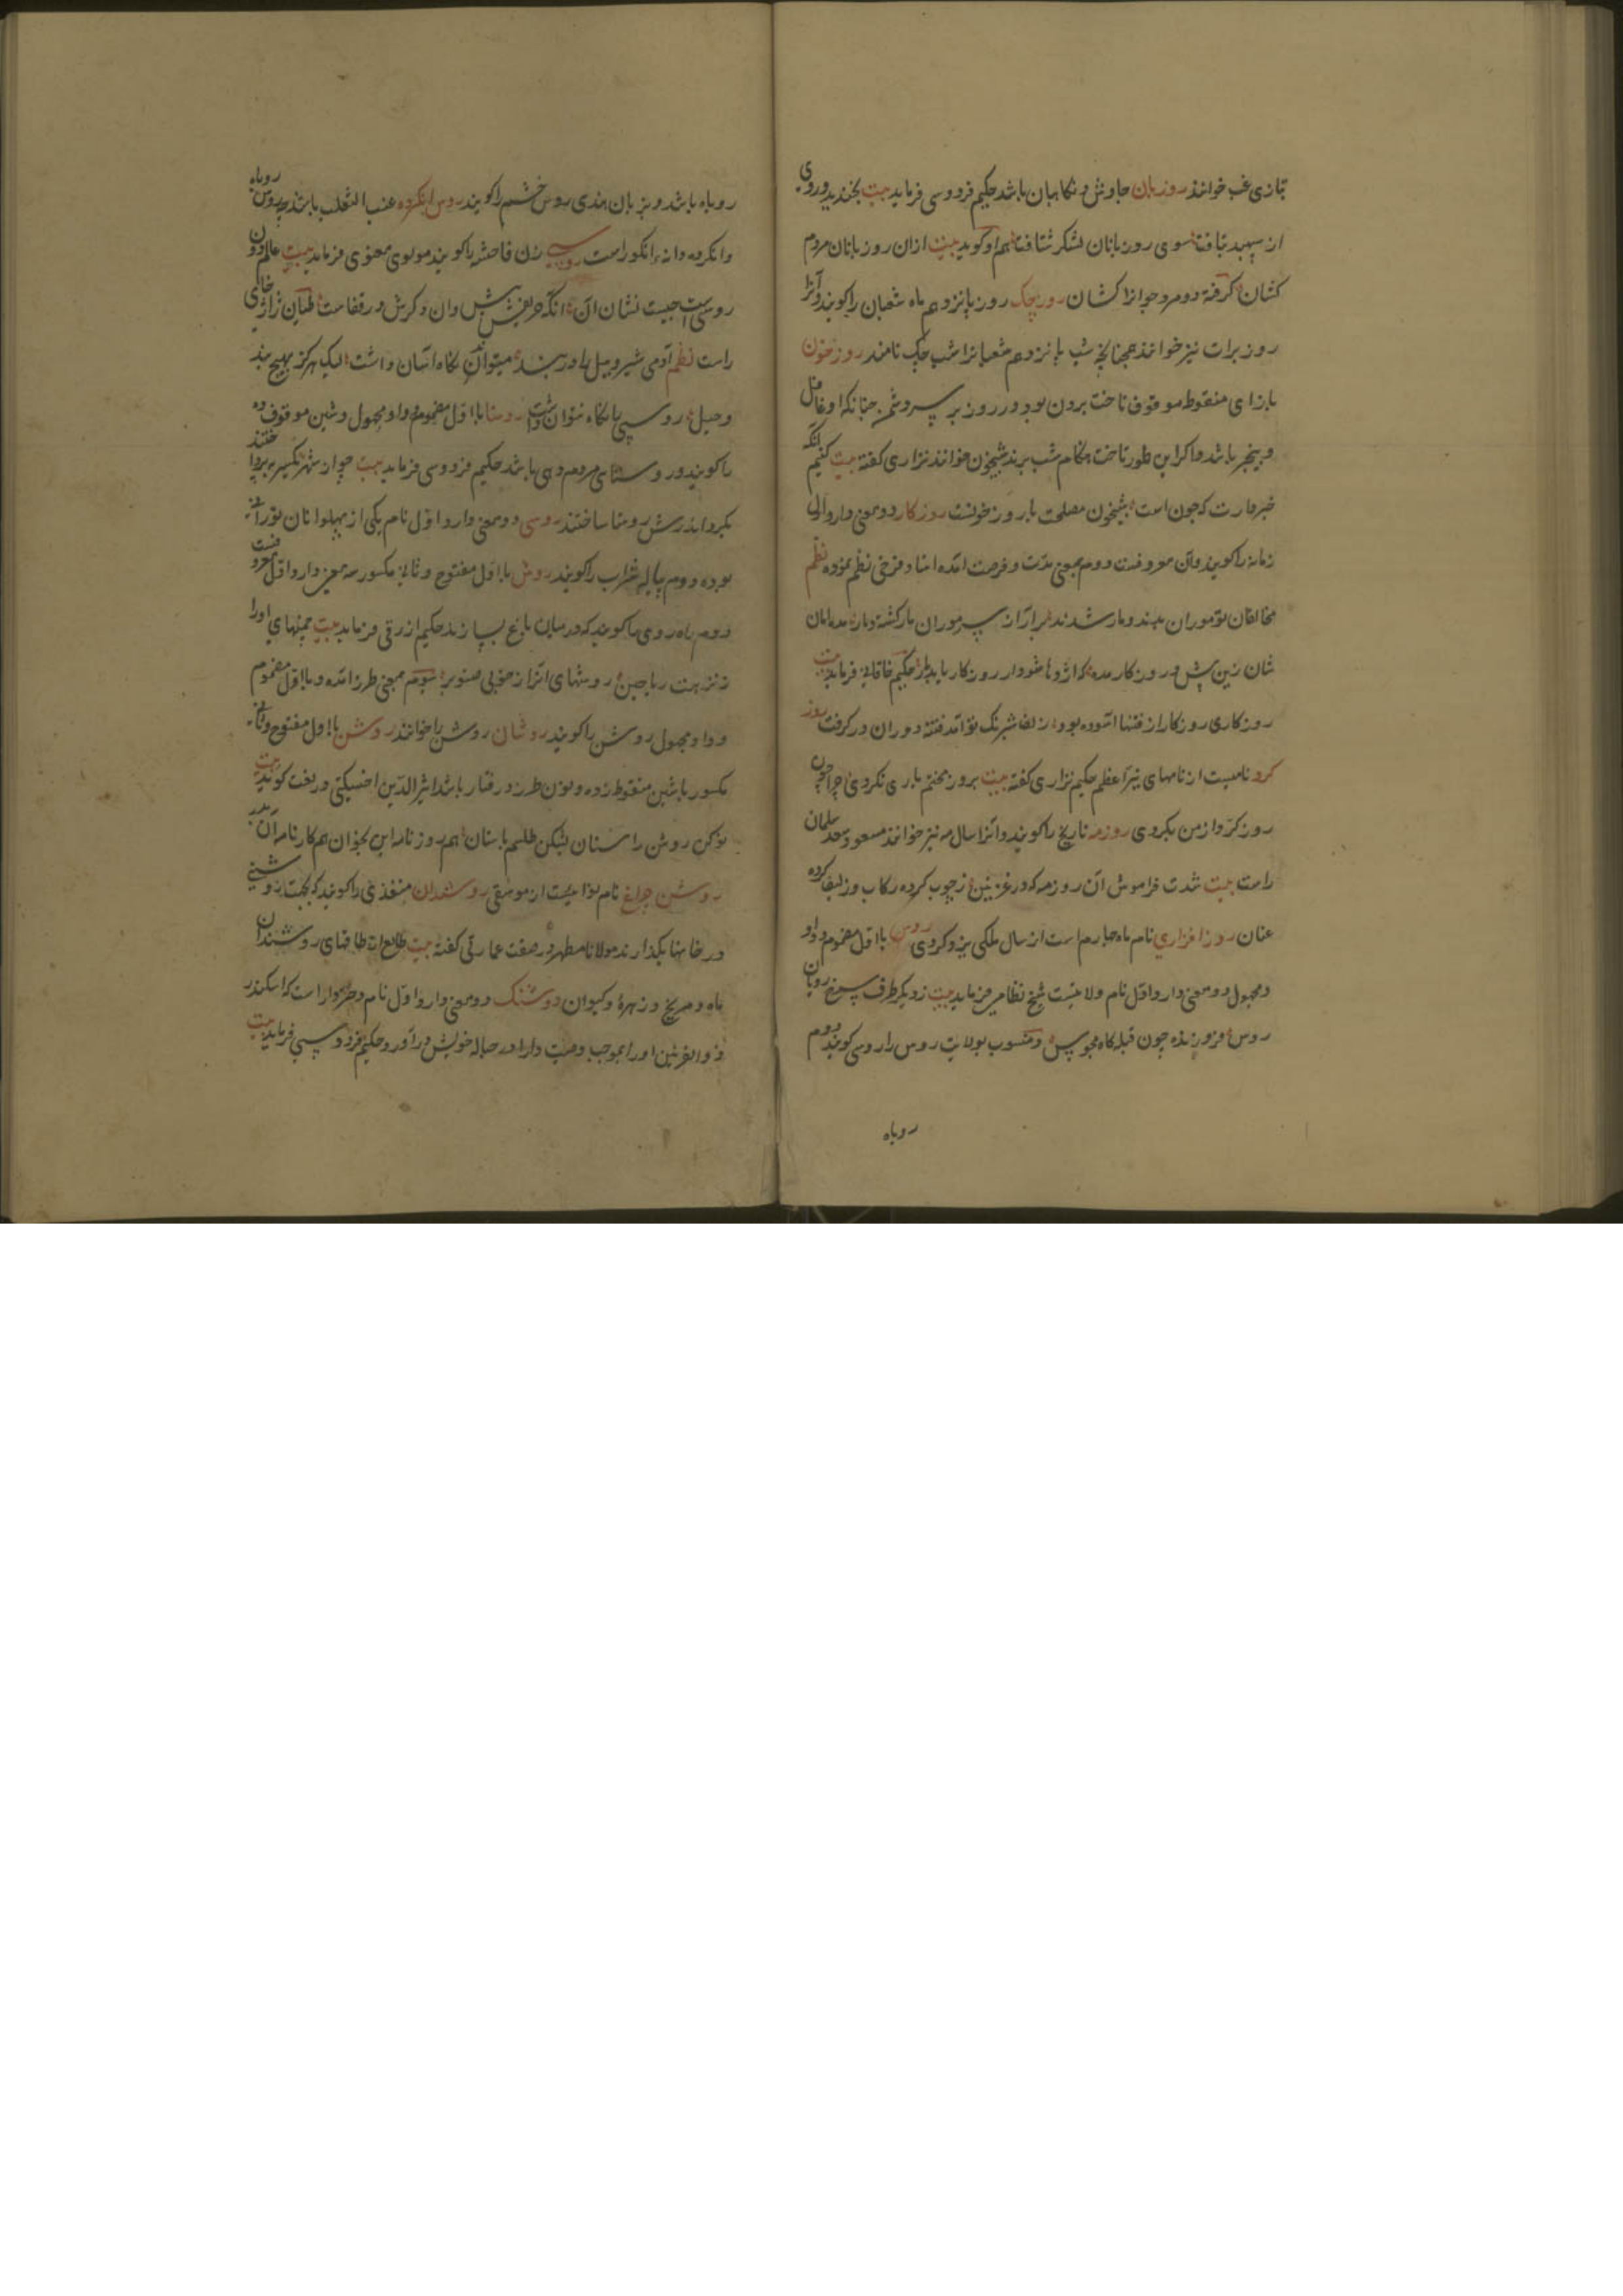 بتازی غب خوانند روزبان جاوش و نکاهبان باشد حکیم فردوسی فرماید بیت بخندید و روی
از سپهبد بتافت سوی روزبانان لشکر شتافت هم او کوید بیت ازان روزبانان مردم
کشان کرفته دو مرد جوانرا کشان روزچک روز پانزدهم ماه شعبان را کویند و آنرا
روز برات نیز خوانند همچنانچه شب پانزدهم شعبانرا شب چک نامند روزخون
با زای منقوط موقوف تاختن بردن بود در روز بر سر دشمن چنانکه او غافل
و بیخبر باشد و اکر این طور تاخت هنکام شب برند شبیخون خوانند نزاری کفته بیت
خبردارت که چون است شبیخون مصلحت یا روزخونست روزکار دو معنی دارد اول
زمانه را کویند و آن معروفست دوم بمعنی مدت و فرصت آمده استاد فرخی نظم نموده نظم
مخالفان تو موران بدند و مار شدند برار از سر موران مار کشته دمار مده امان
شان زین پیش و روزکار مده که اژدها شود ار روزکار یابد مار حکیم خاقانی فرماید بیت
روزکاری روزکار از فتنها آسوده بود زلف شبرنک تو آمد فتنه دوران در کرفت روز
کرد نامیست از نامهای نیر اعظم حکیم نزاری کفته بیت بروز بختم یاری نکردی چرا چون
روز کرد از من بکردی روزمه تاریخ را کویند و آنرا سال مه نیز خوانند مسعود سعد سلمان
راست بیت شدت فراموش آن روزمه که در غزنین ز چوب کرده رکاب و ز لیف کرده
عنان روزافزاری نام ماه چهارم است از سال ملکی یزدکردی روس با اول مضموم و واو
و مجهول دو معنی دارد اول نام ولایتیست شیخ نظامی فرماید بیت ز دیکر طرف سرخ رویان
روس فروزنده چون قبله کاه مجوس و منسوب بولایت روس را روسی کویند دوم
روباه
روباه باشد و بزبان هندی روس خشم را کویند روس انکرده عنب الثعلب باشد چه روس روباه
و انکرده دانه انکور است روسپی زن فاحشه را کویند مولوی معنوی فرماید بیت عالم دون
روسپی است چیست نشان آن آنکه حریفیش پیش و ان دکرش در قفاست طیان ژاژخای
راست نظم آدمی شیر و پیل را در بند میتوان نکاه آسان داشت لیک هرکز بهیچ بند
و حیل روسپی را نکاه نتوان داشت روستا با اول مضموم و واو مجهول و شین موقوف ده
را کویند و روستای مردم دهی باشد حکیم فردوسی فرماید بیت چو از شهر یکسر بپرداختند
بکرد اندرش روستا ساختند روسی دو معنی دارد اول نام یکی از پهلوانان تورانی
بوده دوم پیاله شراب را کویند روش با اول مفتوح و ثانی مکسور سه معنی دارد اول معروفست
دوم راه روی را کویند که در میان باغ بسازند حکیم ازرقی فرماید بیت چمنهای او را
ز نزهت ریاحین روشهای آنرا ز خوبی صنوبر سوم بمعنی طرز آمده و با اول مضموم
و واو مجهول روشن را کویند روشان روشن را خوانند روشن با اول مفتوح و ثانی
مکسور با شین منقوط زده و نون طرز و رفتار باشد اثیر الدین اخسیکتی در نعت کوید بیت
روشن چراغ نام نوائیست از موسیقی روشندان منفذی را کویند که بجهت روشنی
در خانها بکذارند مولانا مطهر در صفت عمارتی کفته بیت طالع از طاقهای روشندان
ماه و مریخ و زهره و کیوان روشنک دو معنی دارد اول نام دختر دارا است که اسکندر
ذو القرنین او را بموجب وصیت دارا در حباله خویش در آورد حکیم فردوسی فرماید بیت